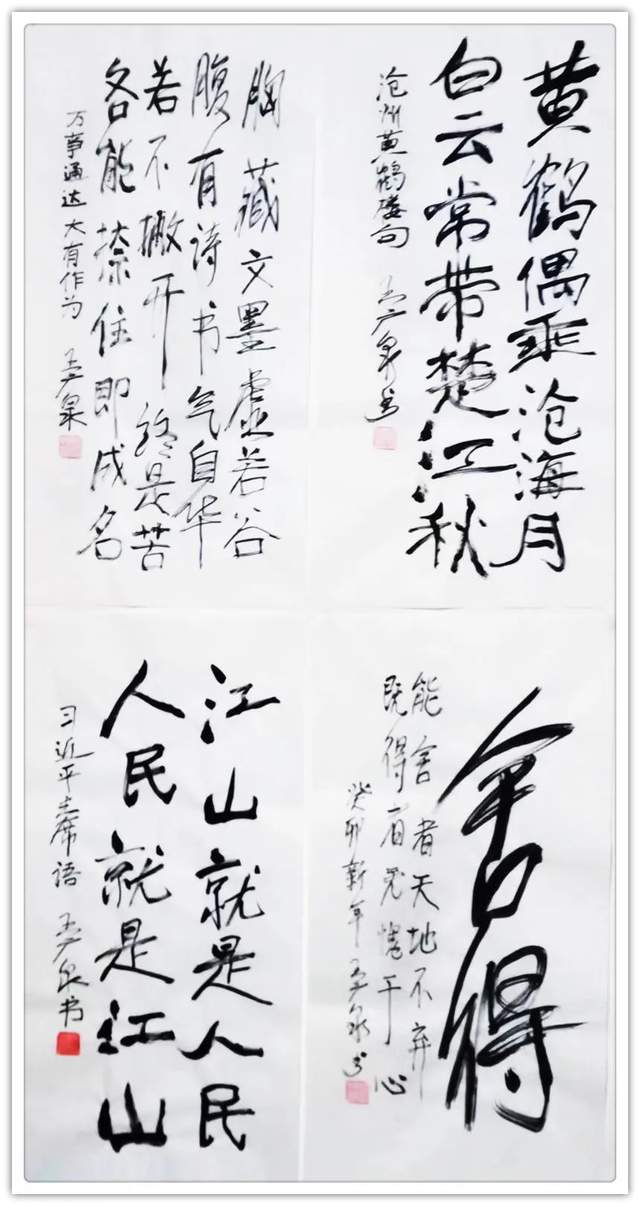 黄鹤偶乘沧海月
白云常带楚江秋
沧州黄鹤楼句 泉书
胸藏文墨虚若谷
腹有诗书气自华
若不撇开终是苦
各能捺住即成名
万事通达 大有作为 泉
舍得
能舍者天地不弃
既得者惓于心
癸卯新年 泉书
江山就是人民
人民就是江山
习近平主席语 泉书